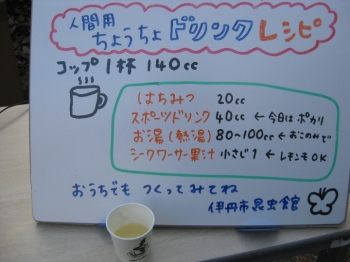 人間用
ちょうちょドリンクレシピ
コップ1杯 140cc
はちみつ 20cc
スポーツドリンク 40cc ← 今日はポカリ
お湯(熱湯) 80~100cc ← おこのみで
シークワーサー果汁 小さじ1 ← レモンもOK
おうちでもつくってみてね
伊丹市昆虫館